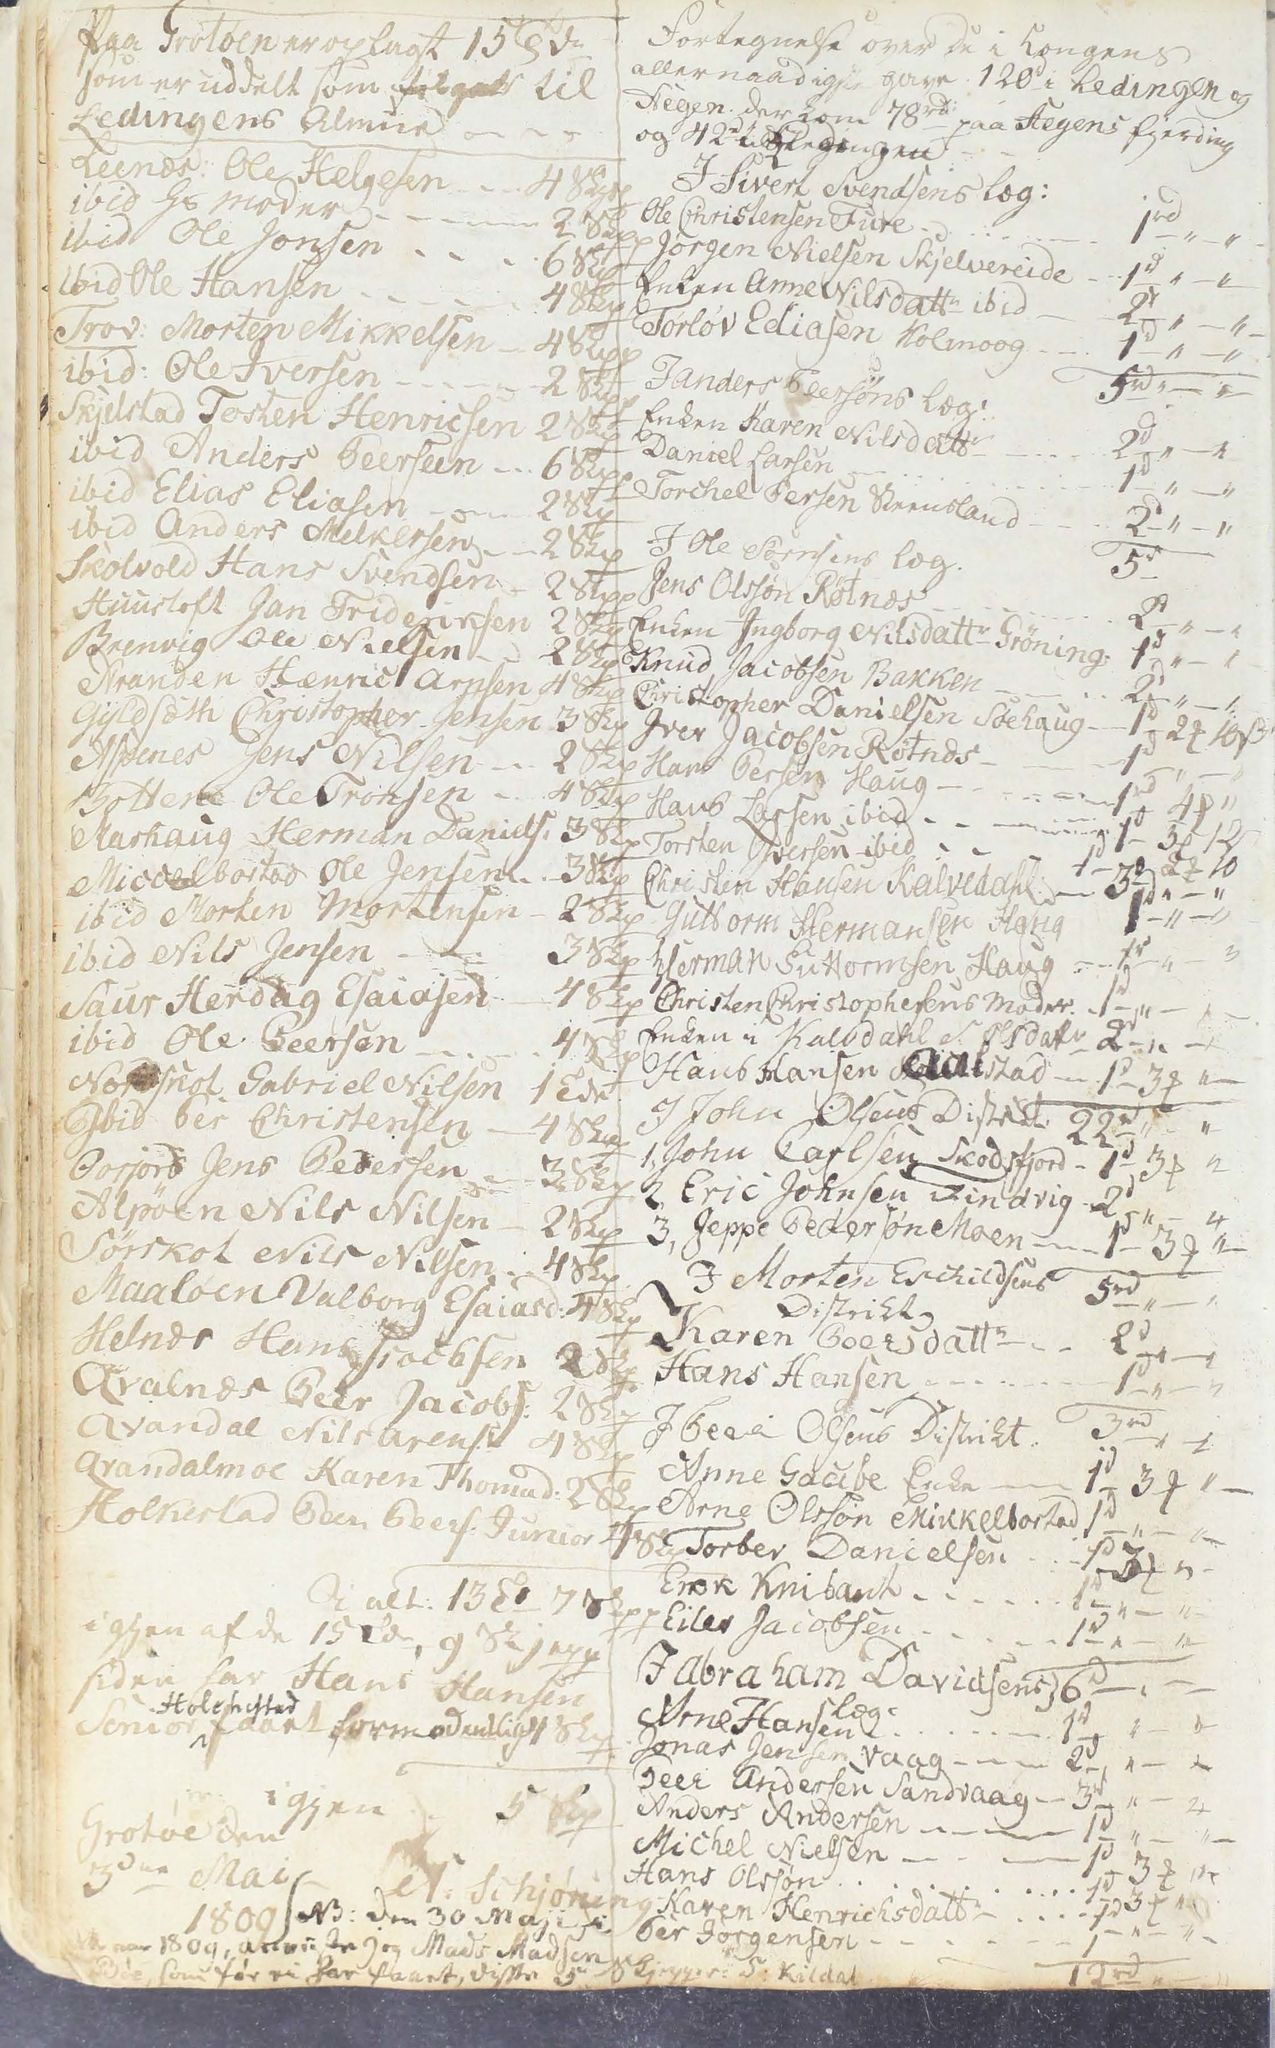 Paa Grotøen er oplagt 15
som er uddelt som til
Ledingens Almue
Leenæs: Ole Helgesen 4 Skp
ibid Hs moder 2 Skp
ibid Ole Jonsen 6 Skp
ibid Ole Hansen 4 Skp
Trov: Morten Mikkelsen 4 Skp
ibid: Ole Iversen 2 Skp
Skjelstad Tosten Henricsen 2 Skp
ibid Anders Peersen 6 Skp
ibid Elias Eliasen 2 Skp
ibid Anders Melkersen 2 Skp
Skolvold Hans Svendsen 2 Skp
Huustoft Jan Frideriksen 2 Skp
Brenvig Ole Nielsen 2 Skp
Stranden Hænric Arnsen 4 Skp
Gyldsæth Christopher Jensen 3 Skp
Aspenes Jens Nilsen 2 Skp
Botten Ole Tronsen 4 Skp
Marhaug Herman Daniels: 3 Skp
Miccelbostad Ole Jensen 3 Skp
ibid Morten Mortensen 2 Skp
ibid Nils Jensen 3 Skp
Saur Herdag Esaiasen 4 Skp
ibid Ole Peersen 4 Skp
Gabriel Nilsen 1
Ibid Per Christensen 4 Skp
Jens Pedersen 3 Skp
Alpøen Nils Nilsen 2 Skp
Sørskot Nils Nilsen 4 Skp
Maaløen Valborg Esaiasd: 4 Skp
Helnæs Hans Jacobsen 2 Skp
Qvalnæs Peer Jacobs: 2 Skp
Qvandal Nils Arens: 4 Skp
Qvandalmoe Karen Thomad: 2 Skp
Holkestad Peer Peers: Junior 4 Skp
I alt: 13 7 Skp
igjen af de 15, 9 Skjepp
siden har Hans Hansen
Holkestad
Senior faaet formodentlig 4 Skp
igjen 5 Skp
Grotøe den
3die Mai
1809 N: Schjøning
NB: den 30 Maji
1809, Jog Mads Madsen
som før ei har faaet, disse 5 Skjepper S: Kildal
Fortegnelse over de i Kongens
allernaadigste gave 120d i Ledingen og
Stegen. der kom 78rd: paa Stegens fjerding
og 42d i Ledingen
I Sivert Svendsens Læg:
Ole Christensen Fure 1rd " "
Jørgen Nielsen Skjelvereide 1d " "
Enken Anne Nilsdattr ibid 2d " "
Torløv Ediasen Holmoog 1d " "
5rd " "
I Anders Peersøns Læg:
Enken Karen Nilsdattr 2d " "
Daniel Larsen 1d " "
Torchel Persen 2d " "
5d
I Ole Sørnsens Læg.
Jens Olssøn Røtnæs 2d " "
Enken Ingborg Nilsdattr Grøning: 1d " "
Knud Jacobsen Bakken 2d " "
Christopher Danielsen Soehaug 1d 2 10
Iver Jacobsen Røtnæs 1d " "
Hans Persen Haug 1rd 4 "
Hans Larsen ibid 1d 3 12
Torsten Iversen ibid 1d 2 10
Christen Hansen Kalvedahl 3d " "
Guttorm Hermansen Haug 1d " "
Herman Guttormsen Haug 1d " "
Christen Christophersens Moder 1d " "
Enken i Kalvdahl 2d " "
Hans Hansen 1d 3 "
22d " "
I John Olsens Distrikt
1, John Carlsen Skodsfjord 1d 3 "
2, Eric Johnsen Findvig 2d " "
3, Jeppe Pedersøn Moen 1d 3 "
5rd " "
I Morten Eschildsens
Distrikt
Karen Peersdattr 2d " "
Hans Hansen 1d " "
3rd " "
I Peer Olsens Distrikt
Anne Gaube Enke 1d 3 "
Arne Olssøn Mikkelbostad 1d " "
Torber Danielsen 1d 3 "
Erik Knibank 1d " "
Eiler Jacobsen 1d " "
6d " "
I Abraham Davidsens
Læg:
Arne Hansen 1d " "
Jonas Jensen Vaag 2d " "
Peer Andersen Sandvaag 3d " "
Anders Andersen 1d " "
Michel Nielsen 1d 3 "
Hans Olssøn 1d 3 "
Karen Henrichsdattr 1d " "
Per Jørgensen 1 " "
12rd " "